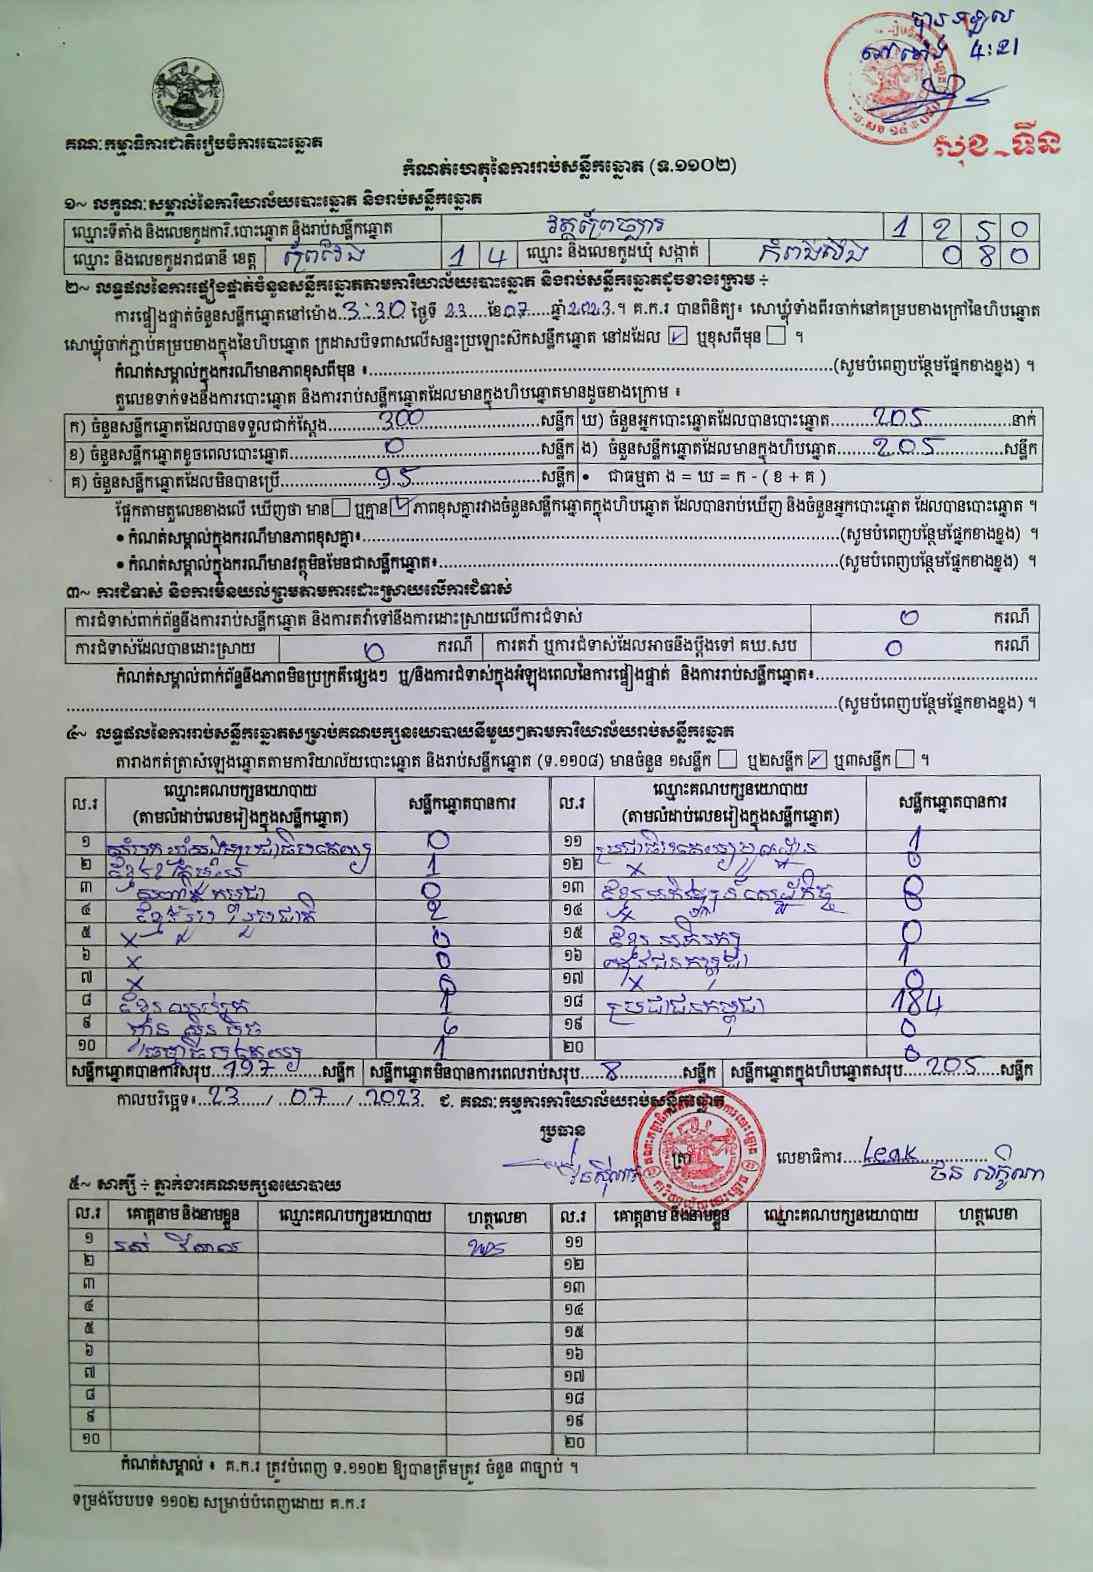 បានទទួល
នៅម៉ោង 4:21
សុខ-ទីន
គណៈកម្មាធិការជាតិរៀបចំការបោះឆ្នោត
កំណត់ហេតុនៃការរាប់សន្លឹកឆ្នោត (ទ.១១០២)
១~ លក្ខណៈសម្គាល់នៃការិយាល័យបោះឆ្នោត និងរាប់សន្លឹកឆ្នោត
ឈ្មោះទីតាំង និងលេខកូដការិ.បោះឆ្នោត និងរាប់សន្លឹកឆ្នោត 1 2 5 0
ឈ្មោះ និងលេខកូដរាជធានី ខេត្ត ព្រៃវែង 1 4 ឈ្មោះ និងលេខកូដឃុំ សង្កាត់ 0 8 0
២~ លទ្ធផលនៃការផ្ទៀងផ្ទាត់ចំនួនសន្លឹកឆ្នោតតាមការិយាល័យបោះឆ្នោត និងរាប់សន្លឹកឆ្នោតដូចខាងក្រោម ÷
ការផ្ទៀងផ្ទាត់ចំនួនសន្លឹកឆ្នោតនៅម៉ោង 3:30 ថ្ងៃទី 23 ខែ 07 ឆ្នាំ 2023 ។ គ.ក.រ បានពិនិត្យ៖ សោឃ្លុំទាំងពីរចាក់នៅគម្របខាងក្រៅនៃហិបឆ្នោត
សោឃ្លុំចាក់ភ្ជាប់គម្របខាងក្នុងនៃហិបឆ្នោត ក្រដាសបិទពាសលើសន្ទះប្រឡោះស៊កសន្លឹកឆ្នោត នៅដដែល ✓ ឬខុសពីមុន ។
កំណត់សម្គាល់ក្នុងករណីមានភាពខុសពីមុន ៖ (សូមបំពេញបន្ថែមផ្នែកខាងខ្នង) ។
តួលេខទាក់ទងនឹងការបោះឆ្នោត និងការរាប់សន្លឹកឆ្នោតដែលមានក្នុងហិបឆ្នោតមានដូចខាងក្រោម ៖
ក) ចំនួនសន្លឹកឆ្នោតដែលបានទទួលជាក់ស្តែង 300 សន្លឹក ឃ) ចំនួនអ្នកបោះឆ្នោតដែលបានបោះឆ្នោត 205 នាក់
ខ) ចំនួនសន្លឹកឆ្នោតខូចពេលបោះឆ្នោត 0 សន្លឹក ង) ចំនួនសន្លឹកឆ្នោតដែលមានក្នុងហិបឆ្នោត 205 សន្លឹក
គ) ចំនួនសន្លឹកឆ្នោតដែលមិនបានប្រើ 95 សន្លឹក • ជាធម្មតា ង = ឃ = ក - ( ខ + គ )
ផ្អែកតាមតួលេខខាងលើ ឃើញថា មាន ឬគ្មាន ✓ ភាពខុសគ្នារវាងចំនួនសន្លឹកឆ្នោតក្នុងហិបឆ្នោត ដែលបានរាប់ឃើញ និងចំនួនអ្នកបោះឆ្នោត ដែលបានបោះឆ្នោត ។
• កំណត់សម្គាល់ក្នុងករណីមានភាពខុសគ្នា៖ (សូមបំពេញបន្ថែមផ្នែកខាងខ្នង) ។
• កំណត់សម្គាល់ក្នុងករណីមានវត្ថុមិនមែនជាសន្លឹកឆ្នោត៖ (សូមបំពេញបន្ថែមផ្នែកខាងខ្នង) ។
៣~ ការជំទាស់ និងការមិនយល់ព្រមតាមការដោះស្រាយលើការជំទាស់
ការជំទាស់ពាក់ព័ន្ធនឹងការរាប់សន្លឹកឆ្នោត និងការតវ៉ាទៅនឹងការដោះស្រាយលើការជំទាស់ 0 ករណី
ការជំទាស់ដែលបានដោះស្រាយ 0 ករណី ការតវ៉ា ឬការជំទាស់ដែលអាចនឹងប្តឹងទៅ គឃ.សប 0 ករណី
កំណត់សម្គាល់ពាក់ព័ន្ធនឹងភាពមិនប្រក្រតីផ្សេងៗ ឬ/និងការជំទាស់ក្នុងអំឡុងពេលនៃការផ្ទៀងផ្ទាត់ និងការរាប់សន្លឹកឆ្នោត៖
(សូមបំពេញបន្ថែមផ្នែកខាងខ្នង) ។
៤~ លទ្ធផលនៃការរាប់សន្លឹកឆ្នោតសម្រាប់គណបក្សនយោបាយនីមួយៗតាមការិយាល័យរាប់សន្លឹកឆ្នោត
តារាងកត់ត្រាសំឡេងឆ្នោតតាមការិយាល័យបោះឆ្នោត និងរាប់សន្លឹកឆ្នោត (ទ.១១០៨) មានចំនួន ១សន្លឹក ឬ២សន្លឹក ✓ ឬ៣សន្លឹក ។
ល.រ ឈ្មោះគណបក្សនយោបាយ (តាមលំដាប់លេខរៀងក្នុងសន្លឹកឆ្នោត) សន្លឹកឆ្នោតបានការ ល.រ ឈ្មោះគណបក្សនយោបាយ (តាមលំដាប់លេខរៀងក្នុងសន្លឹកឆ្នោត) សន្លឹកឆ្នោតបានការ
១ 0 ១១ ប្រជាធិបតេយ្យមូលដ្ឋាន 1
២ 1 ១២ x 0
៣ 0 ១៣ ខ្មែរអភិវឌ្ឍន៍សេដ្ឋកិច្ច 0
៤ ខ្មែររួបរួមជាតិ 2 ១៤ x 0
៥ x 0 ១៥ ខ្មែរអភិរក្ស 0
៦ x 0 ១៦ 1
៧ x 0 ១៧ x 0
៨ ខ្មែរឈប់ក្រ 1 ១៨ ប្រជាជនកម្ពុជា 184
៩ ហ្វ៊ុនស៊ិនប៉ិច 6 ១៩ 0
១០ 1 ២០ 0
សន្លឹកឆ្នោតបានការសរុប 197 សន្លឹក សន្លឹកឆ្នោតមិនបានការពេលរាប់សរុប 8 សន្លឹក សន្លឹកឆ្នោតក្នុងហិបឆ្នោតសរុប 205 សន្លឹក
កាលបរិច្ឆេទ៖ 23 / 07 / 2023 ជ. គណៈកម្មការការិយាល័យរាប់សន្លឹកឆ្នោត
ប្រធាន
ត្រា លេខាធិការ
៥~ សាក្សី ÷ ភ្នាក់ងារគណបក្សនយោបាយ
ល.រ គោត្តនាម និងនាមខ្លួន ឈ្មោះគណបក្សនយោបាយ ហត្ថលេខា ល.រ គោត្តនាម និងនាមខ្លួន ឈ្មោះគណបក្សនយោបាយ ហត្ថលេខា
១ ១១
២ ១២
៣ ១៣
៤ ១៤
៥ ១៥
៦ ១៦
៧ ១៧
៨ ១៨
៩ ១៩
១០ ២០
កំណត់សម្គាល់ ៖ គ.ក.រ ត្រូវបំពេញ ទ.១១០២ ឱ្យបានត្រឹមត្រូវ ចំនួន ៣ច្បាប់ ។
ទម្រង់បែបបទ ១១០២ សម្រាប់បំពេញដោយ គ.ក.រ